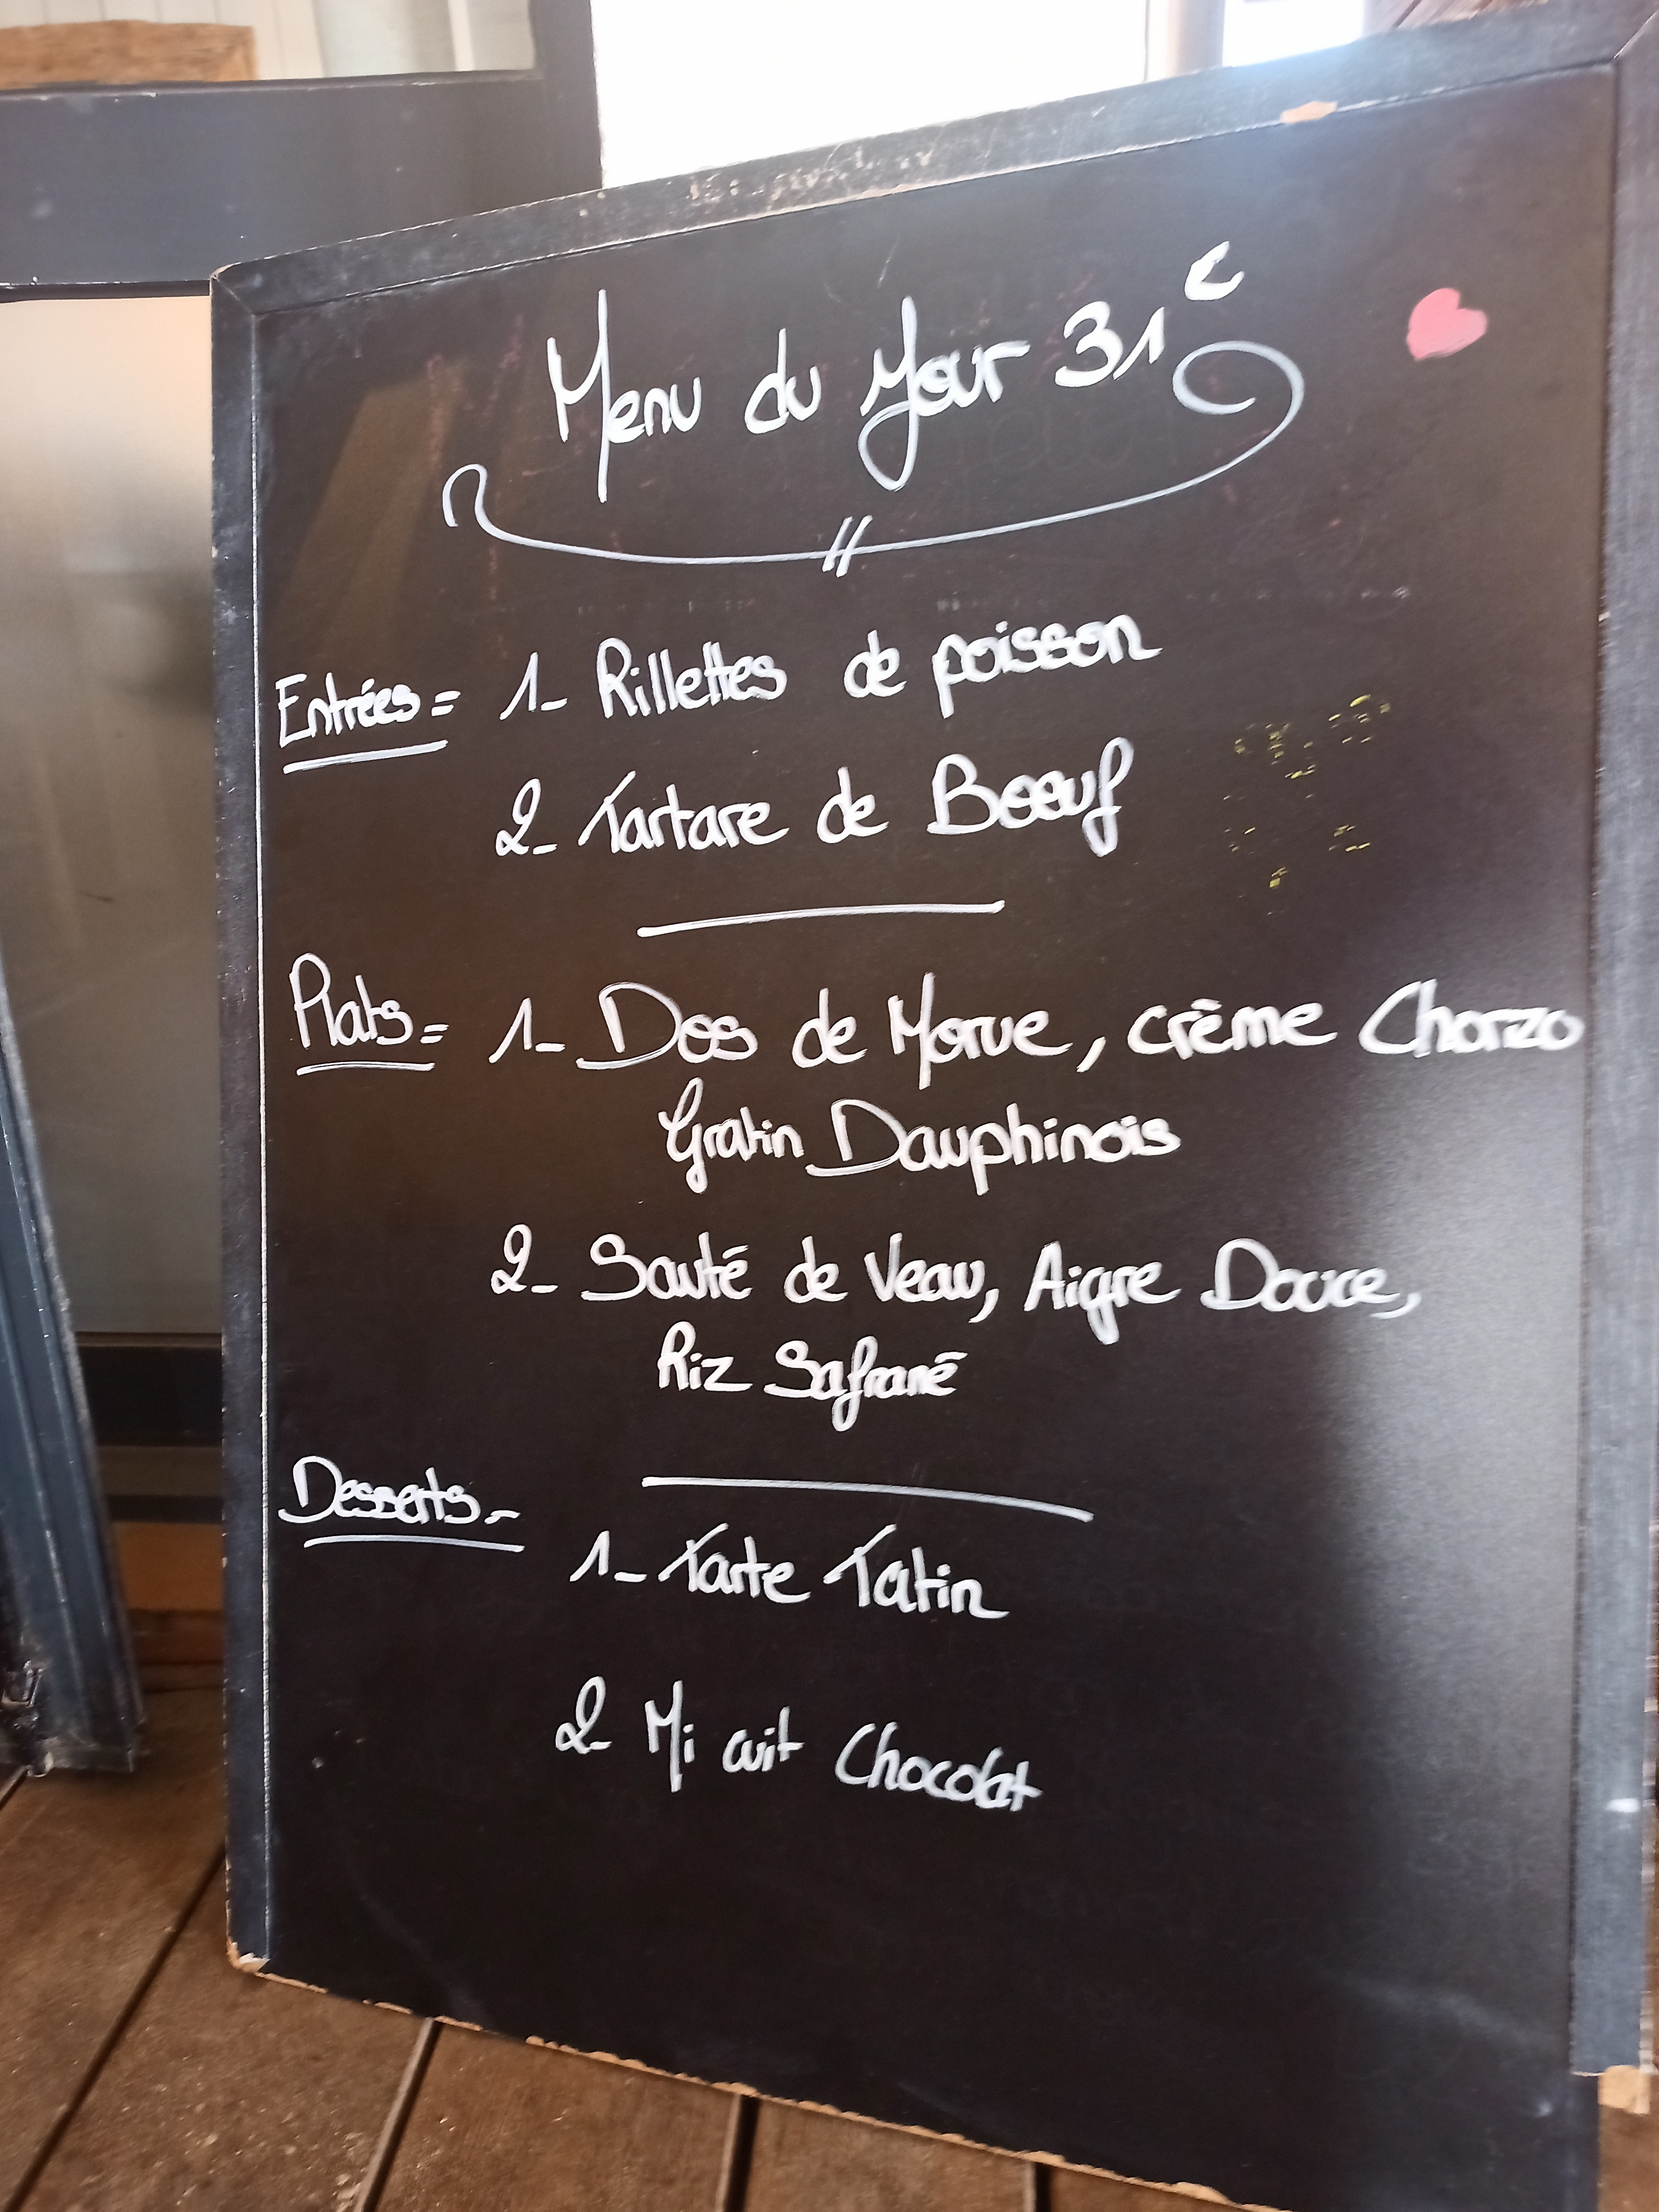 Menu du Jour 31€
Entrées = 1- Rillettes de poisson
2- Tartare de Boeuf
Plats = 1- Dos de Morue, crème Chorizo
Gratin Dauphinois
2- Sauté de Veau, Aigre Douce,
Riz Safrané
Desserts -
1- Tarte Tatin
2- Mi cuit Chocolat